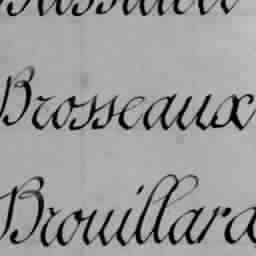 Brosseaux
Brouillard